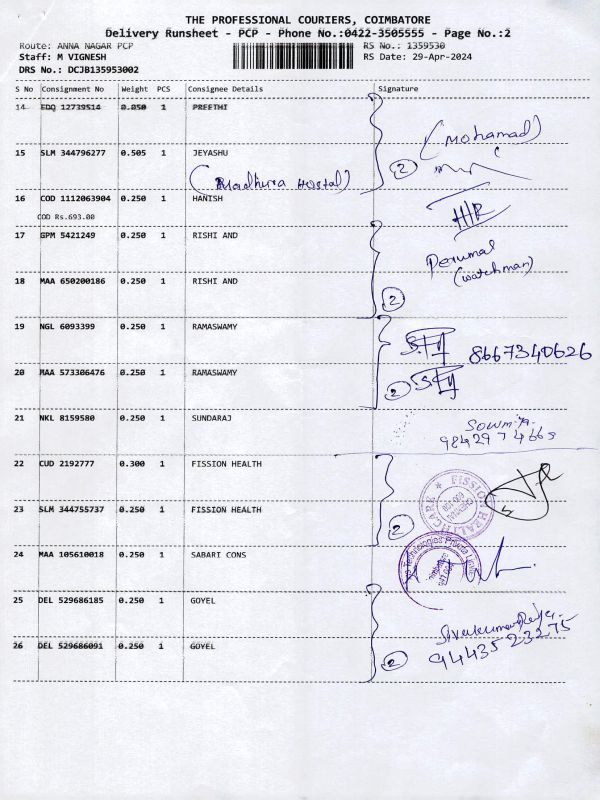 THE PROFESSIONAL COURIERS, COIMBATORE
Delivery Runsheet - PCP - Phone No.:0422-3505555 - Page No.:2
Route: ANNA NAGAR PCP RS No.: 1359530
Staff: M VIGNESH RS Date: 29-Apr-2024
DRS No.: DCJB135953002
S No Consignment No Weight PCS Consignee Details Signature
14 EDQ 12739514 0.050 1 PREETHI
(Mohamad)
15 SLM 344796277 0.505 1 JEYASHU 2
(Madhura Hostal)
16 COD 1112063904 0.250 1 HANISH
COD Rs.693.00
17 GPM 5421249 0.250 1 RISHI AND
Perumal
(watchman)
18 MAA 650200186 0.250 1 RISHI AND
2
19 NGL 6093399 0.250 1 RAMASWAMY
8667340626
20 MAA 573306476 0.250 1 RAMASWAMY
2
21 NKL 8159580 0.250 1 SUNDARAJ
Sowmiya.
9842974665
22 CUD 2192777 0.300 1 FISSION HEALTH
FISSION HEALTHCARE
23 SLM 344755737 0.250 1 FISSION HEALTH
2
24 MAA 105610018 0.250 1 SABARI CONS
25 DEL 529686185 0.250 1 GOYEL
9443523275
26 DEL 529686091 0.250 1 GOYEL
2